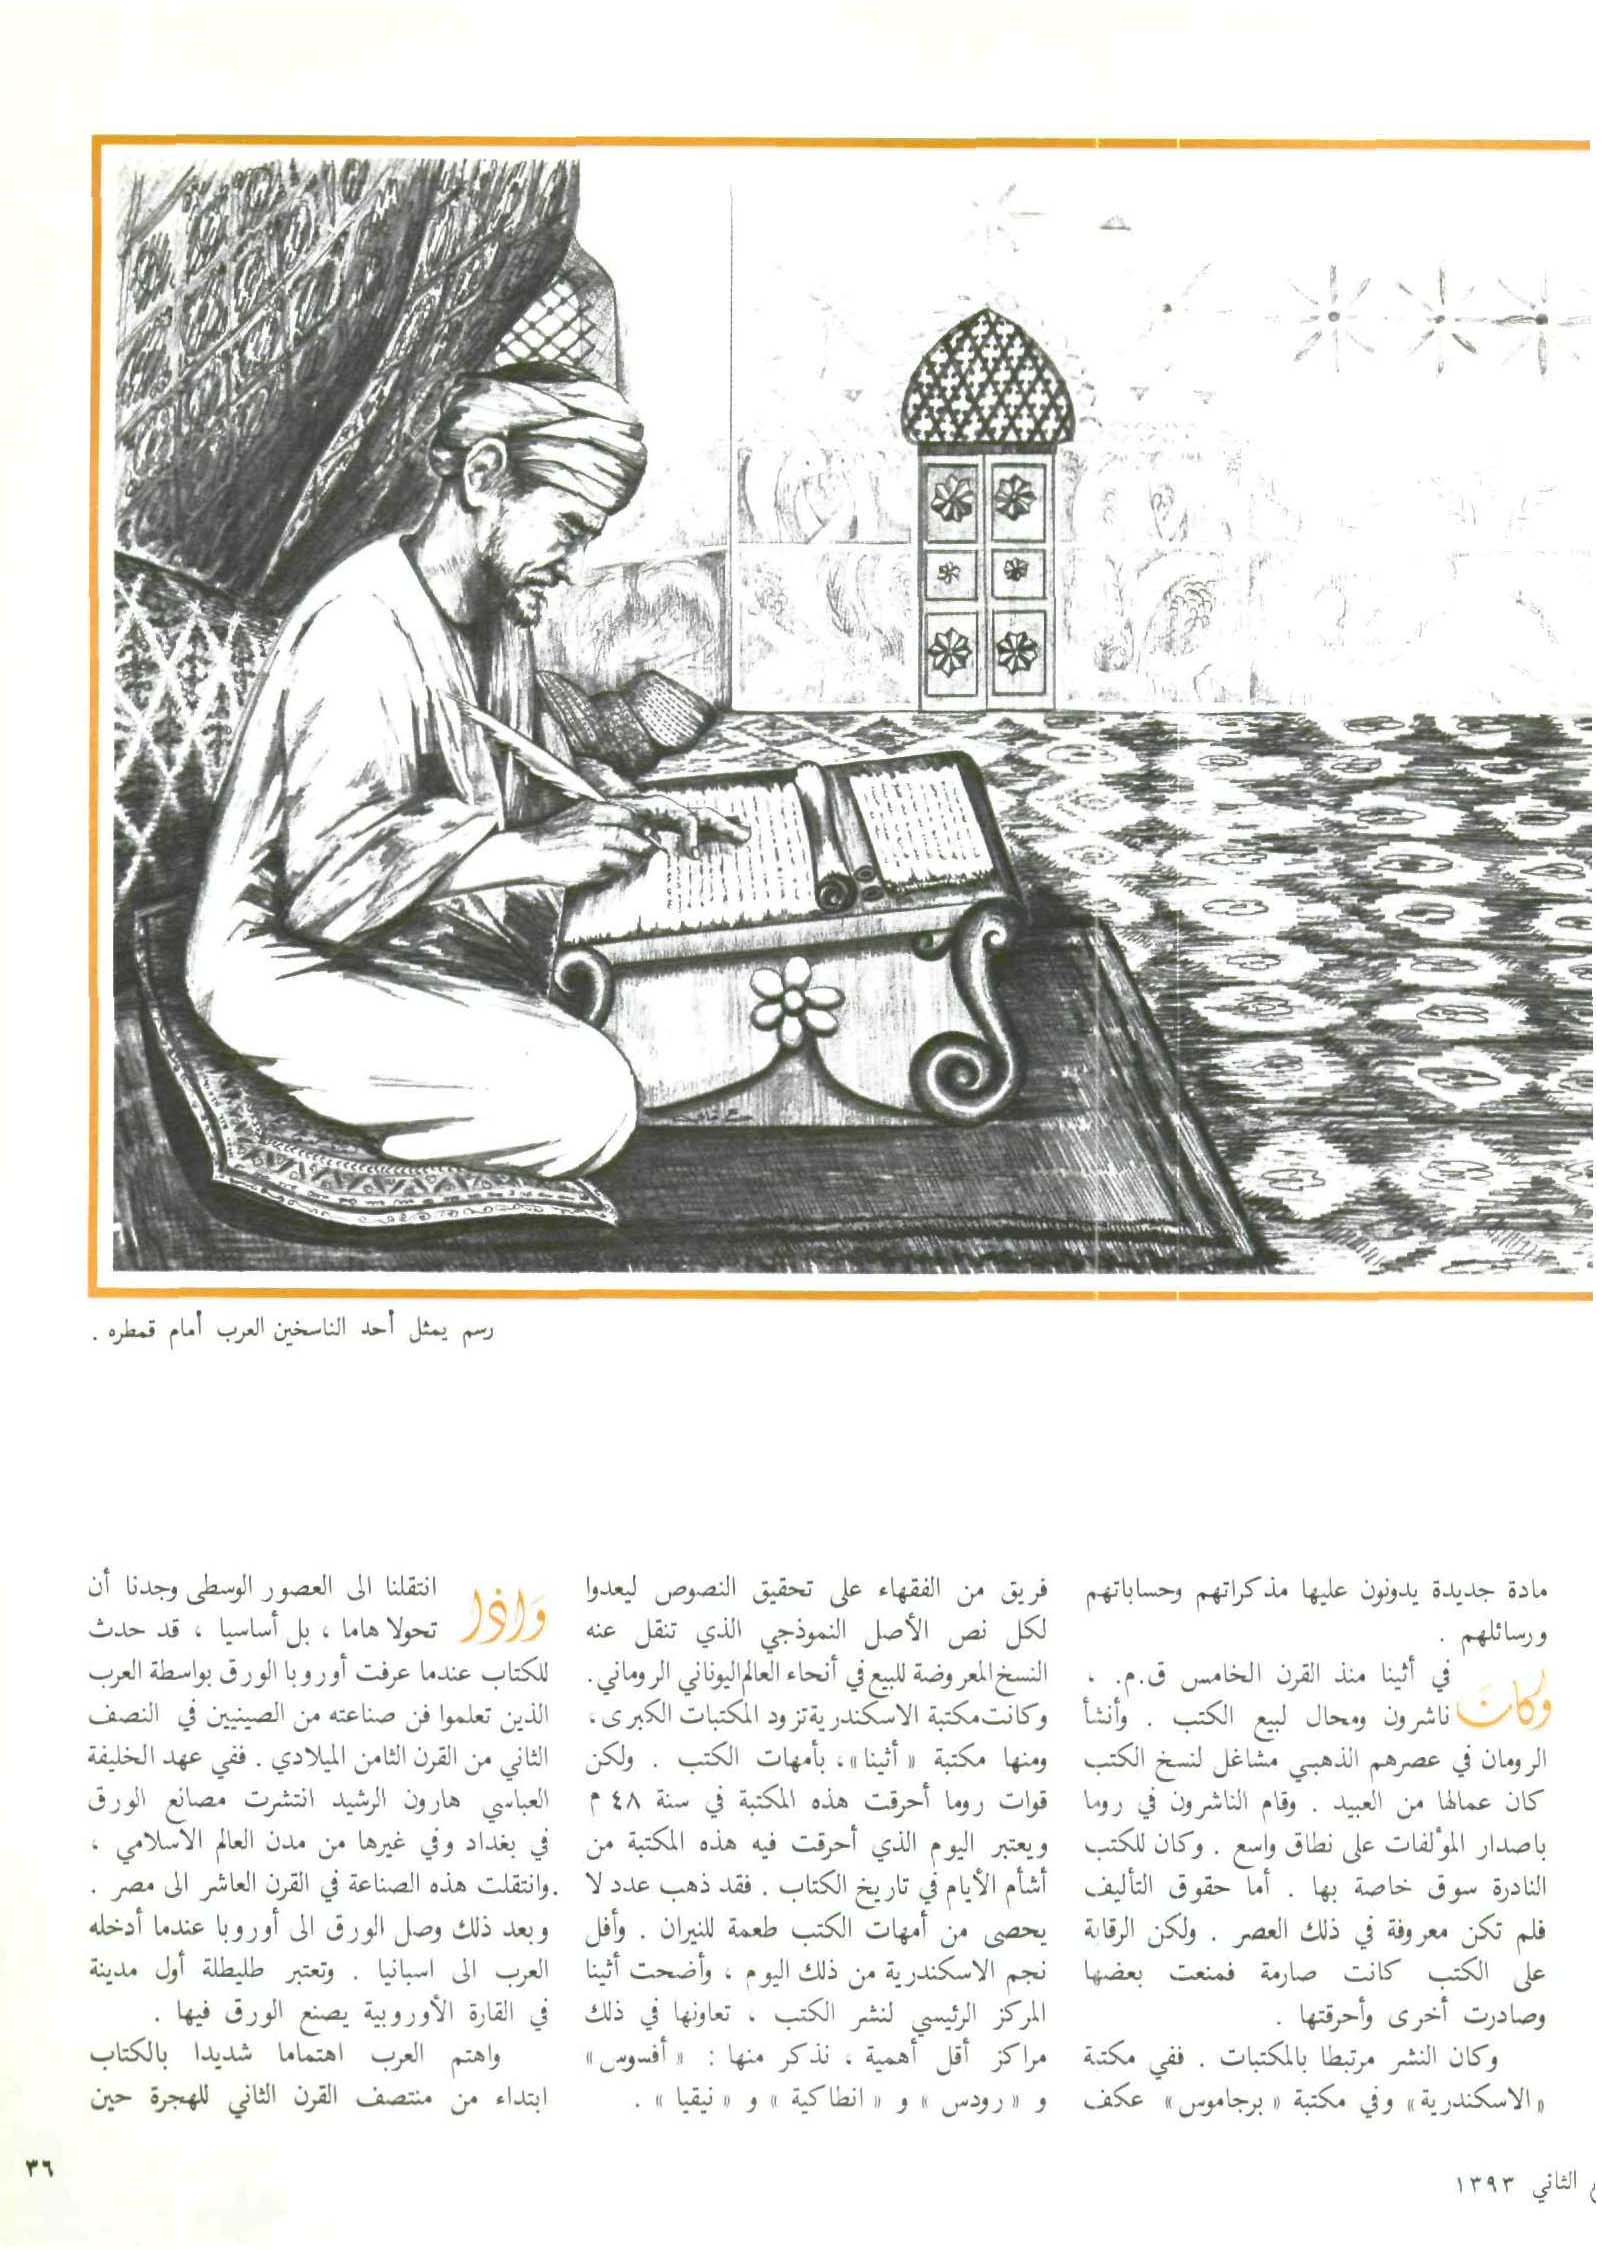 رسم يمثل أحد الناسخين العرب أمام قمطره .
مادة جديدة يدونون عليها مذكراتهم وحساباتهم
ورسائلهم .
وكان في أثينا منذ القرن الخامس ق.م. ،
ناشرون ومحال لبيع الكتب . وأنشأ
الرومان في عصرهم الذهبي مشاغل لنسخ الكتب
كان عمالها من العبيد . وقام الناشرون في روما
باصدار المؤلفات على نطاق واسع . وكان للكتب
النادرة سوق خاصة بها . أما حقوق التأليف
فلم تكن معروفة في ذلك العصر . ولكن الرقابة
على الكتب كانت صارمة فمنعت بعضها
وصادرت أخرى وأحرقتها .
وكان النشر مرتبطا بالمكتبات . ففي مكتبة
«الاسكندرية» وفي مكتبة «برجاموس» عكف
فريق من الفقهاء على تحقيق النصوص ليعدوا
لكل نص الأصل النموذجي الذي تنقل عنه
النسخ المعروضة للبيع في أنحاء العالم اليوناني الروماني.
وكانت مكتبة الاسكندرية تزود المكتبات الكبرى،
ومنها مكتبة «أثينا»، بأمهات الكتب . ولكن
قوات روما أحرقت هذه المكتبة في سنة ٤٨ م
ويعتبر اليوم الذي أحرقت فيه هذه المكتبة من
أشأم الأيام في تاريخ الكتاب . فقد ذهب عدد لا
يحصى من أمهات الكتب طعمة للنيران . وأفل
نجم الاسكندرية من ذلك اليوم ، وأضحت أثينا
المركز الرئيسي لنشر الكتب ، تعاونها في ذلك
مراكز أقل أهمية ، نذكر منها : «أفسوس»
و «رودس» و «انطاكية» و «نيقيا» .
واذا انتقلنا الى العصور الوسطى وجدنا أن
تحولا هاما ، بل أساسيا ، قد حدث
للكتاب عندما عرفت أوروبا الورق بواسطة العرب
الذين تعلموا فن صناعته من الصينيين في النصف
الثاني من القرن الثامن الميلادي . ففي عهد الخليفة
العباسي هارون الرشيد انتشرت مصانع الورق
في بغداد وفي غيرها من مدن العالم الاسلامي ،
وانتقلت هذه الصناعة في القرن العاشر الى مصر .
وبعد ذلك وصل الورق الى أوروبا عندما أدخله
العرب الى اسبانيا . وتعتبر طليطلة أول مدينة
في القارة الأوروبية يصنع الورق فيها .
واهتم العرب اهتماما شديدا بالكتاب
ابتداء من منتصف القرن الثاني للهجرة حين
الثاني ١٣٩٣
٣٦